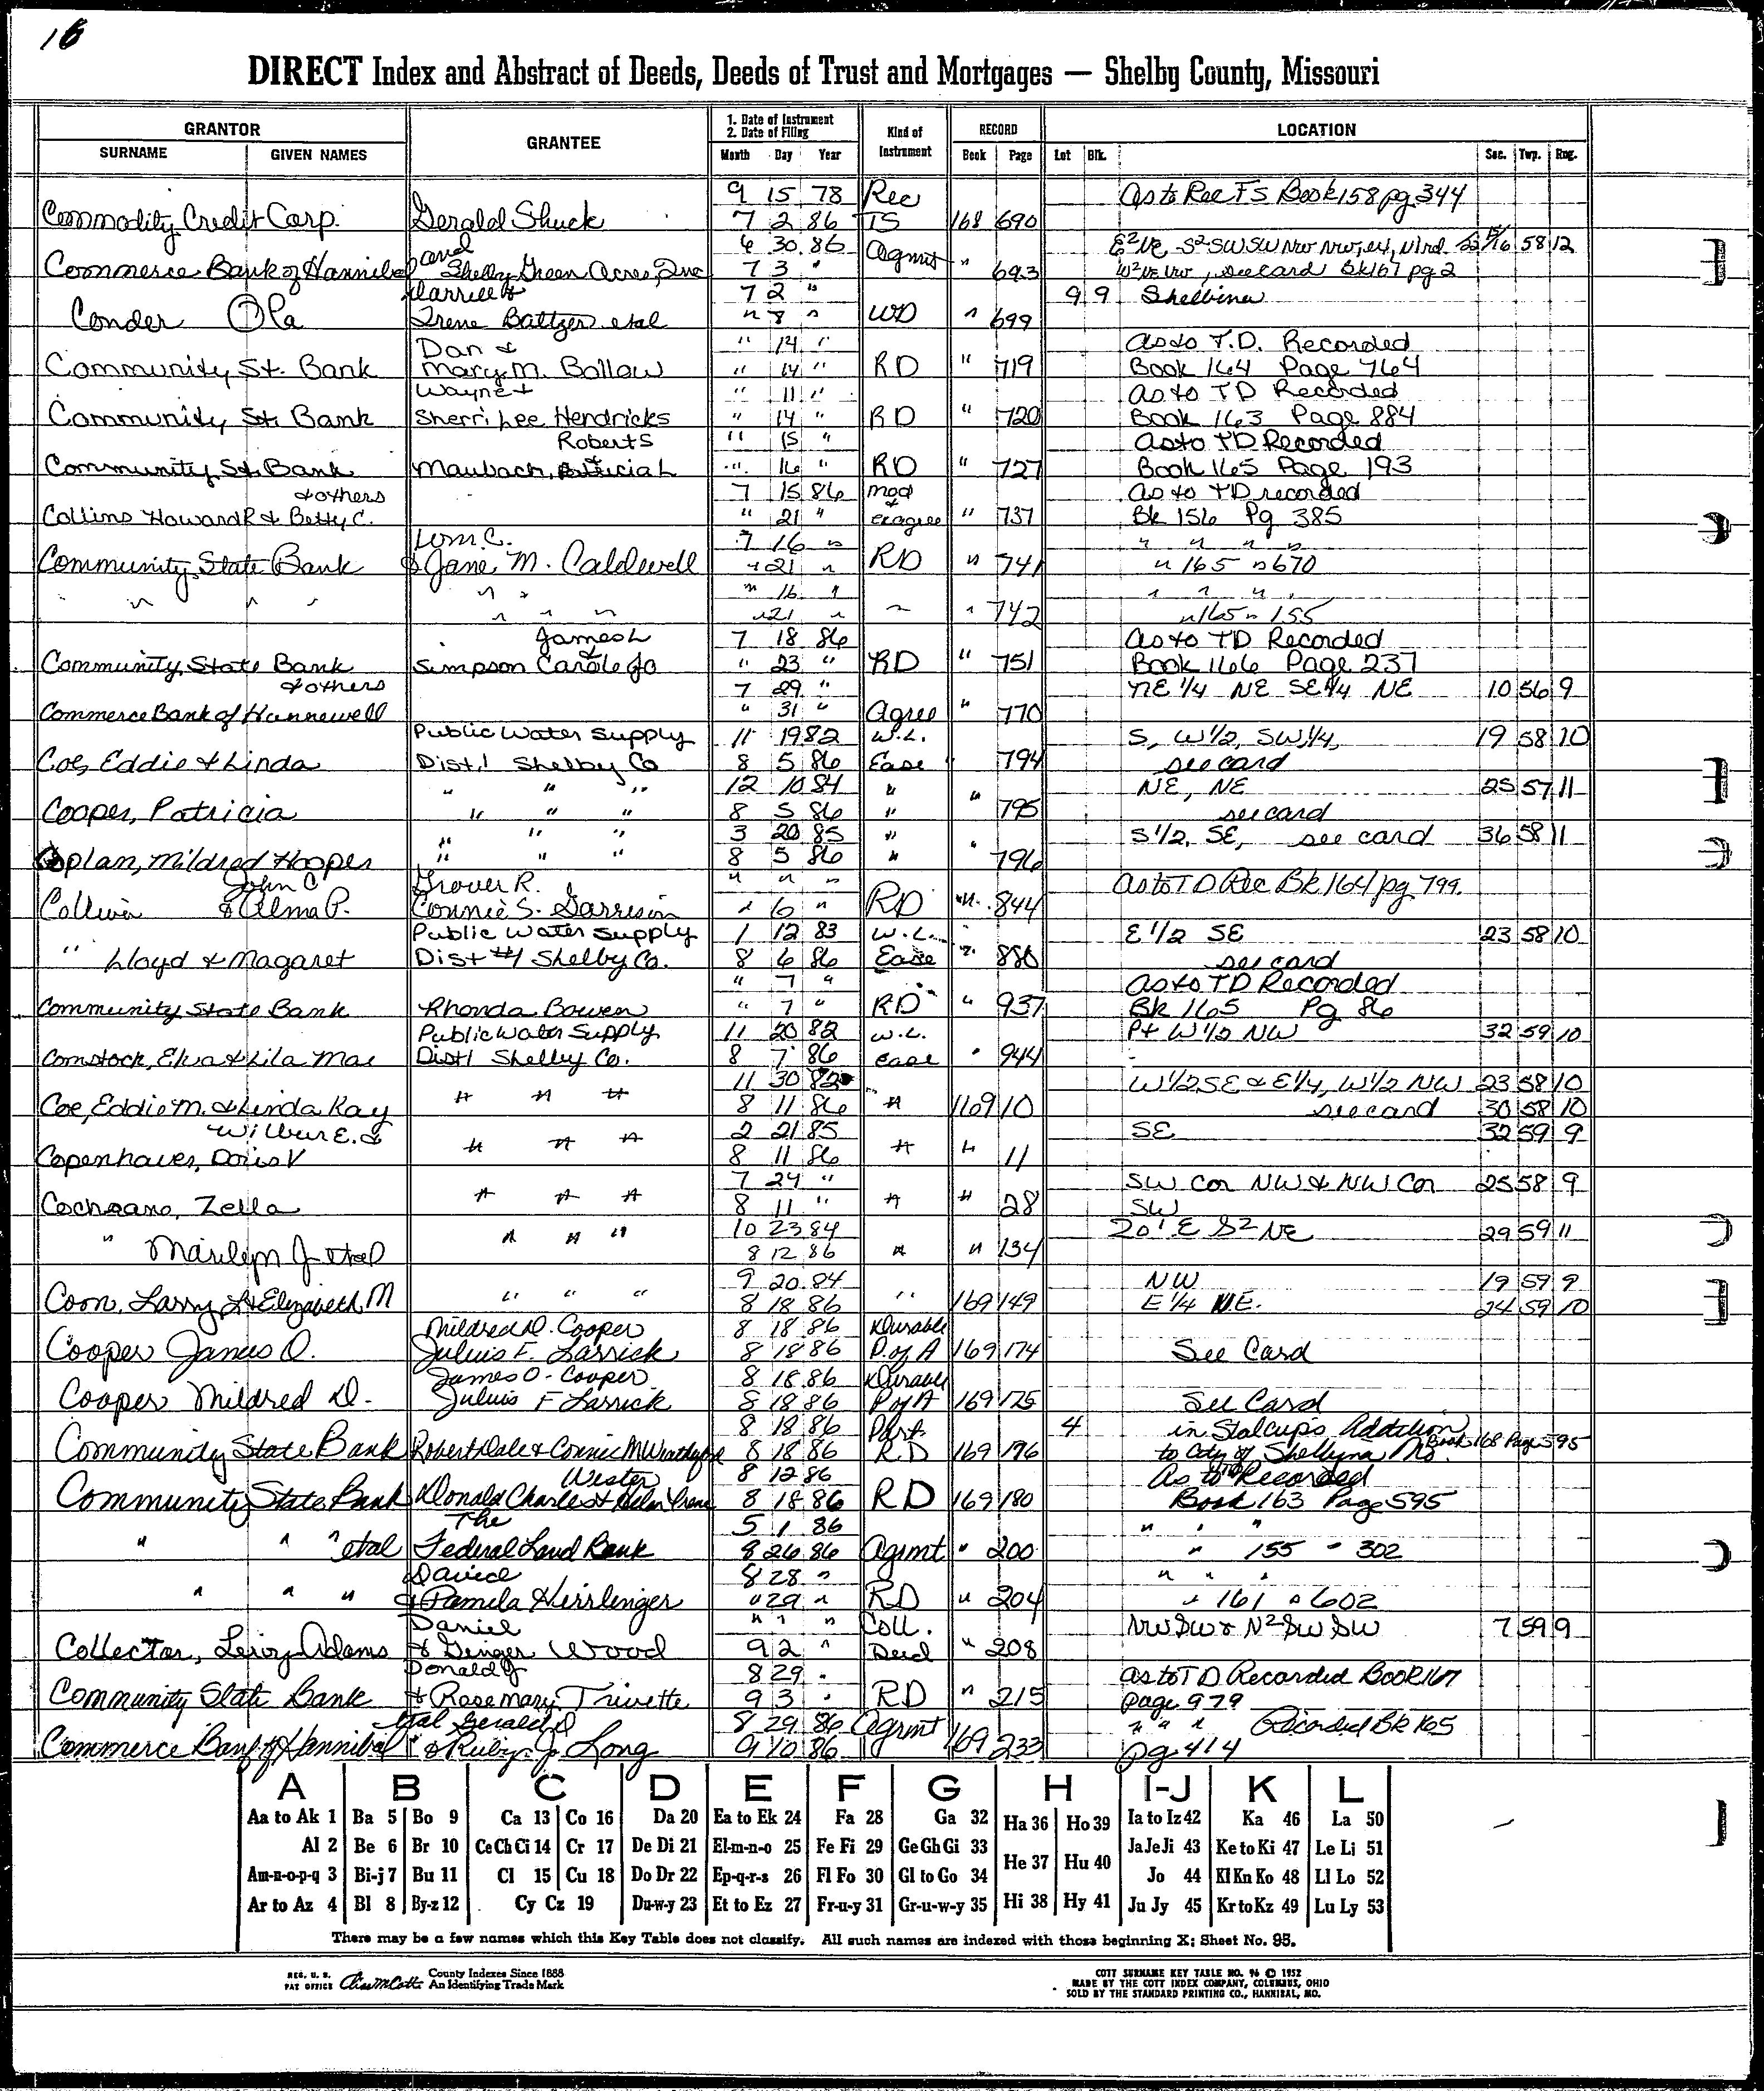 16
DIRECT Index and Abstract of Deeds, Deeds of Trust and Mortgages — Shelby County, Missouri
GRANTOR GRANTEE 1. Date of Instrument 2. Date of Filing Kind of Instrument RECORD LOCATION
SURNAME GIVEN NAMES Month Day Year Book Page Lot Blk. Sec. Twp. Rng.
9 15 78 Rec As to Rec FS Book 158 pg 344
Commodity Credit Corp. Gerald Shuck 7 2 86 TS 168 690
and 6 30 86 Agmt 58 12
Commerce Bank of Hannibal Shelby Green Acres, Inc 7 3 " " 693 W² NE NW, see card Bk 167 pg 2
Darrell & 7 2 " 9 9 Shelbina
Conder Ola Irene Baltzer etal " 8 " WD " 699
Dan & " 14 " as to T.D. Recorded
Community St. Bank Mary M. Bollow " 14 " RD " 719 Book 164 Page 764
Wayne & " 11 " as to TD Recorded
Community St. Bank Sherri Lee Hendricks " 14 " RD " 720 Book 163 Page 884
Robert S " 15 " as to TD Recorded
Community St. Bank Maubach, & Tricia L " 16 " RD " 727 Book 165 Page 193
& others 7 15 86 mod & as to TD recorded
Collins Howard R & Betty C. " 21 " exagree " 737 Bk 156 Pg 385
Wm. C. 7 16 " " " " "
Community State Bank & Jane M. Caldwell " 21 " RD " 741 " 165 " 670
" " " " " " 16 " " " " "
" " " " 21 " " " 742 " 165 " 155
James L 7 18 86 as to TD Recorded
Community State Bank Simpson & Carole Jo " 23 " RD " 751 Book 166 Page 237
& others 7 29 " NE 1/4 NE SE 1/4 NE 10 56 9
Commerce Bank of Hunnewell " 31 " Agree " 770
Public Water Supply 11 19 82 W.L. S, W 1/2, SW 1/4, 19 58 10
Coe, Eddie & Linda Dist. 1 Shelby Co 8 5 86 Ease " 794 see card
" " " 12 10 84 " " NE, NE 25 57 11
Cooper, Patricia " " " 8 5 86 " 795 see card
" " " 3 20 85 " " S 1/2, SE, see card 36 58 11
Coplan, Mildred Hooper " " " 8 5 86 " 796
John C Grover R. " " " as to TD Rec Bk 164 pg 799.
Collier & Alma P. Connie S. Garrison " 6 " RD " 844
Public Water Supply 1 12 83 W.L. E 1/2 SE 23 58 10
" Lloyd & Magaret Dist #1 Shelby Co. 8 6 86 Ease " 880 see card
" 7 " as to TD Recorded
Community State Bank Rhonda Bowen " 7 " RD " 937 Bk 165 Pg 86
Public Water Supply 11 20 82 W.L. Pt W 1/2 NW 32 59 10
Comstock, Elva & Lila Mae Dist 1 Shelby Co. 8 7 86 ease " 944
11 30 82 W 1/2 SE & E 1/4, W 1/2 NW 23 58 10
Coe, Eddie M. & Linda Kay " " " 8 11 86 " 169 10 see card 30 58 10
Wilbur E. & 2 21 85 SE 32 59 9
Copenhaver, Doris V " " " 8 11 86 " " 11
7 24 " SW Cor NW & NW Cor 25 58 9
Cochrane, Zella " " " 8 11 " " " 28 SW
10 23 84 20' E S² NE 29 59 11
" Marilyn J etal " " " 8 12 86 " " 134
9 20 84 NW 19 59 9
Coon, Larry L & Elizabeth M " " " 8 18 86 " 169 149 E 1/4 NE. 24 59 10
Mildred D. Cooper 8 18 86 Durable
Cooper James O. Juluis F. Larrick 8 18 86 P. of A 169 174 See Card
James O. Cooper 8 18 86 Durable
Cooper Mildred D. Juluis F Larrick 8 18 86 P of A 169 175 See Card
8 18 86 Part. 4 in Stalcups Addition
Community State Bank Robert Dale & Connie M 8 18 86 RD 169 176 to City of Shelbyna Mo. Book 168 Page 595
Wester 8 12 86 As to TD Recorded
Community State Bank Donald Charles & Helen Irene 8 18 86 RD 169 180 Book 163 Page 595
The 5 1 86 " " "
" " " etal Federal Land Bank 8 26 86 Agrmt " 200 " 155 " 302
David 8 28 " " " "
" " " & Pamela Hirrlinger " 29 " RD " 204 " 161 " 602
Daniel " " " Coll. NW SW & N² SW SW 7 59 9
Collector, Leroy Adams & Ginger Wood 9 2 " Deed " 208
Donald J 8 29 " as to TD Recorded Book 167
Community State Bank & Rosemary Trivette 9 3 " RD " 215 page 979
etal Gerald D 8 29 86 Agrmt " " " Recorded Bk 165
Commerce Bank of Hannibal " & Rubye J. Long 9 10 86 169 233 pg 414
A B C D E F G H I-J K L
Aa to Ak 1 Ba 5 Bo 9 Ca 13 Co 16 Da 20 Ea to Ek 24 Fa 28 Ga 32 Ha 36 Ho 39 Ia to Iz 42 Ka 46 La 50
Al 2 Be 6 Br 10 Ce Ch Ci 14 Cr 17 De Di 21 El-m-n-o 25 Fe Fi 29 Ge Gh Gi 33 He 37 Hu 40 Ja Je Ji 43 Ke to Ki 47 Le Li 51
Am-n-o-p-q 3 Bi-j 7 Bu 11 Cl 15 Cu 18 Do Dr 22 Ep-q-r-s 26 Fl Fo 30 Gl to Go 34 Jo 44 Kl Kn Ko 48 Ll Lo 52
Ar to Az 4 Bl 8 By-z 12 Cy Cz 19 Du-w-y 23 Et to Ez 27 Fr-u-y 31 Gr-u-w-y 35 Hi 38 Hy 41 Ju Jy 45 Kr to Kz 49 Lu Ly 53
There may be a few names which this Key Table does not classify. All such names are indexed with those beginning X; Sheet No. 95.
REG. U. S. PAT OFFICE County Indexes Since 1888 An Identifying Trade Mark
COTT SURNAME KEY TABLE NO. 96 © 1952
MADE BY THE COTT INDEX COMPANY, COLUMBUS, OHIO
SOLD BY THE STANDARD PRINTING CO., HANNIBAL, MO.